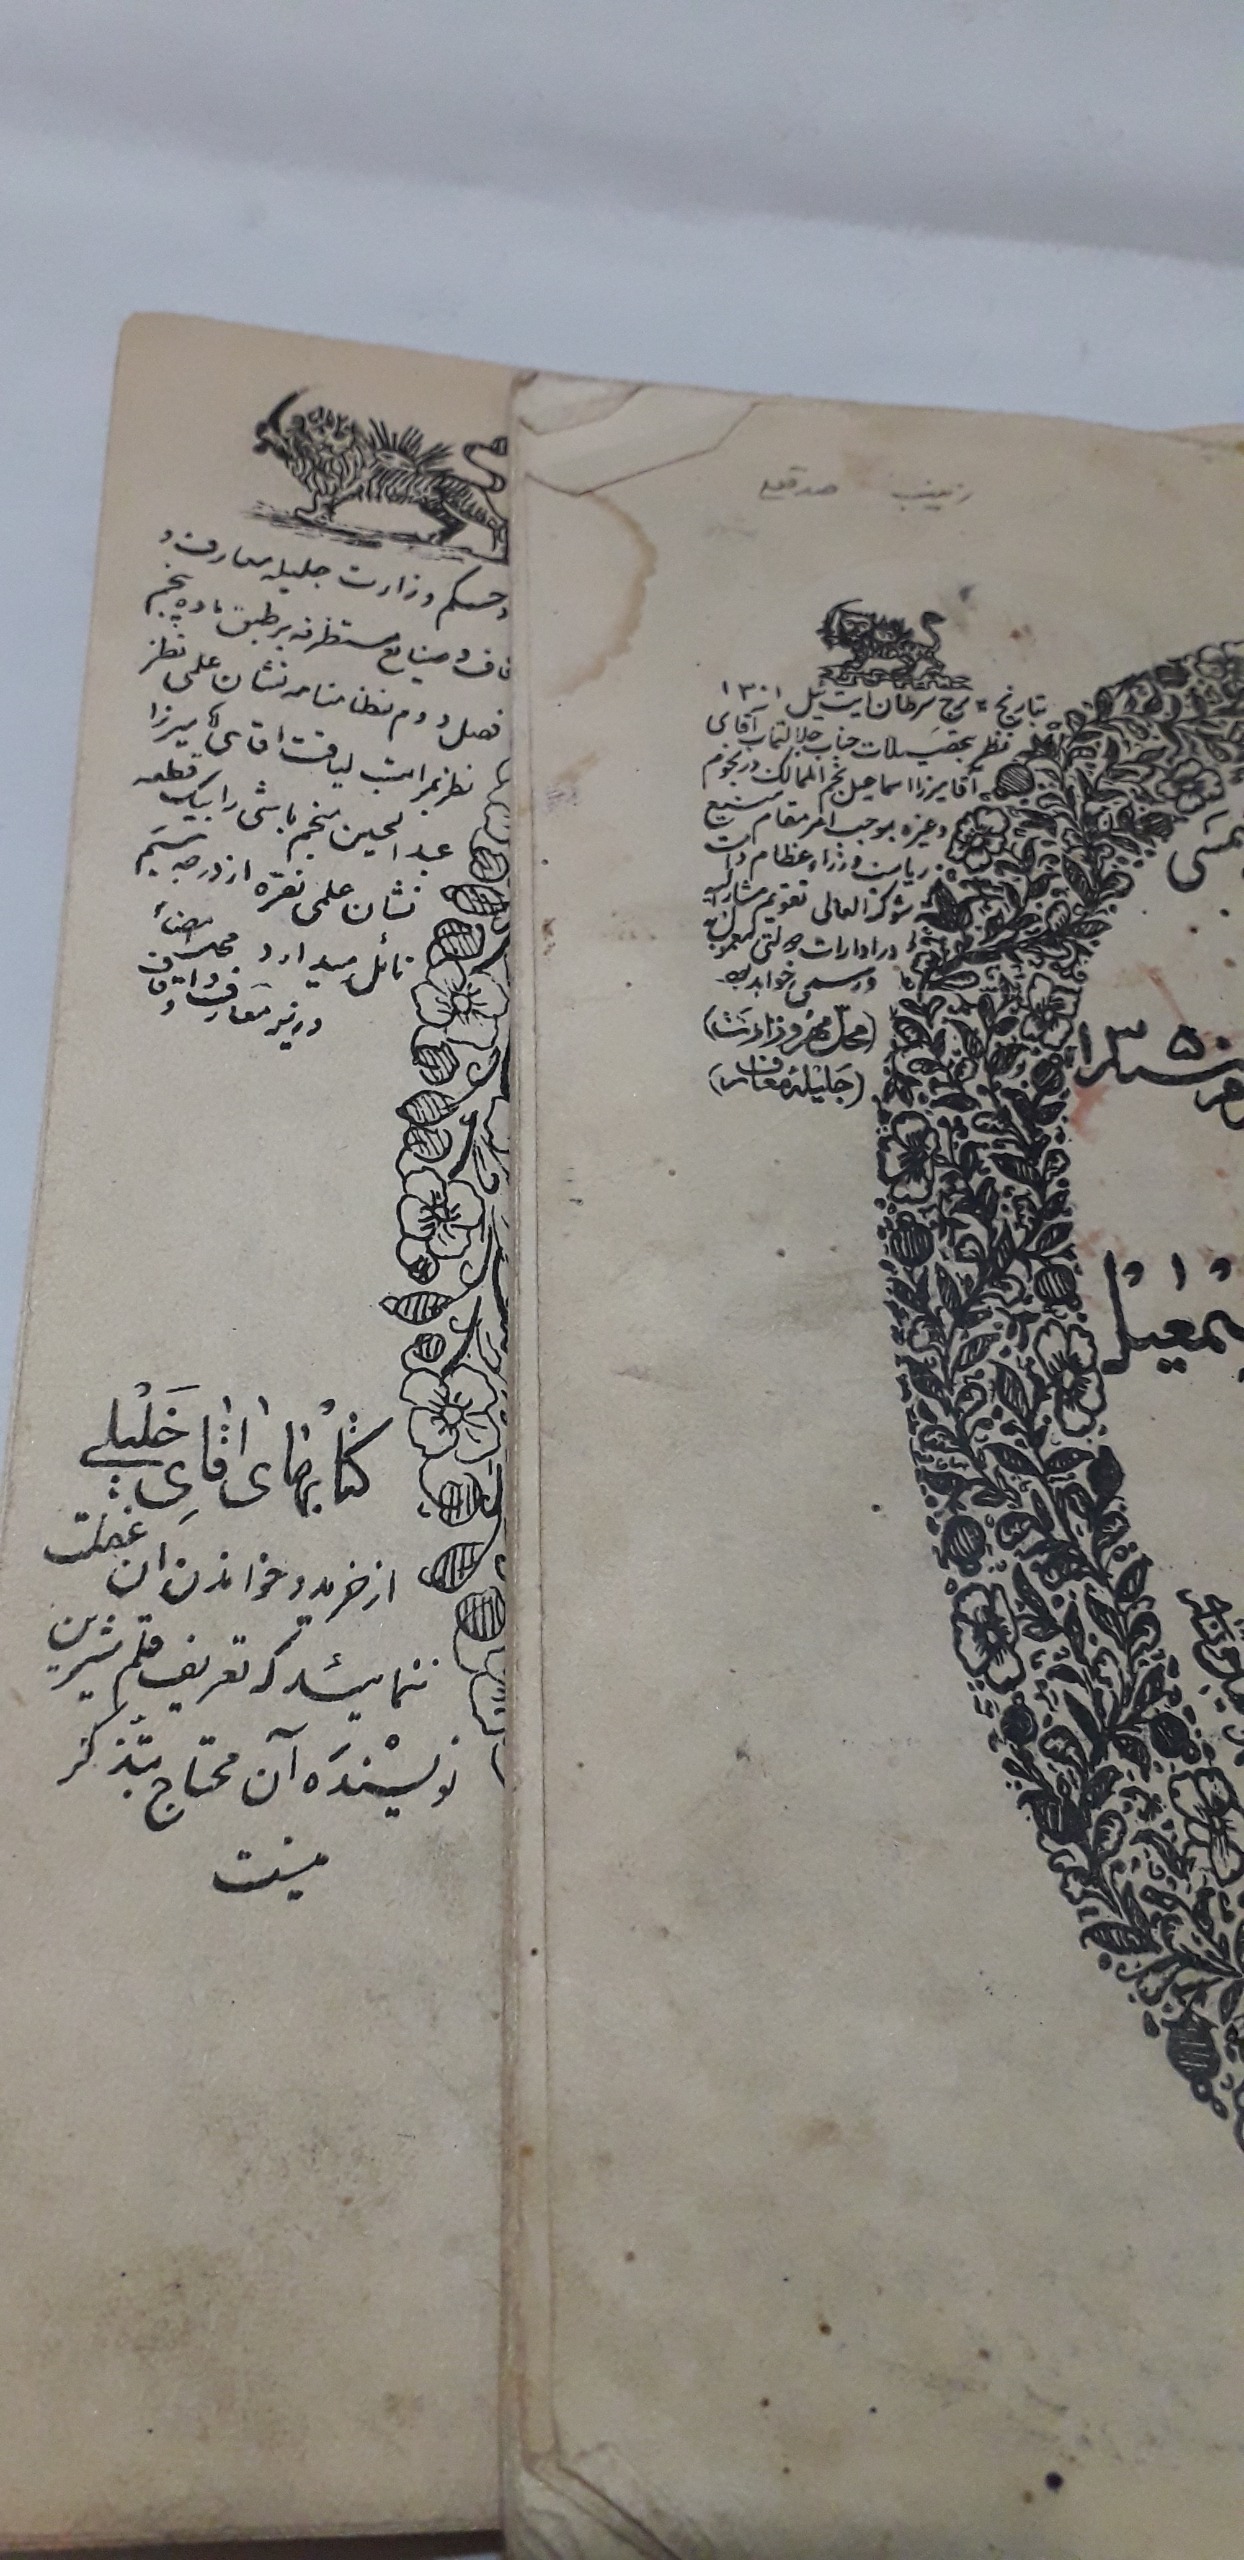 زینب
بتاریخ برج سرطان ایت ئیل ۱۳۰۱
نظر بتحصیلات جناب جلالتمآب آقای
آقا میرزا اسماعیل نجم الممالک در نجوم
و غیره بموجب امر مقام منیع
ریاست وزراء عظام دامت
شوکته العالی تقویم مشار الیه
در ادارات دولتی معمول به
و رسمی خواهد بود
(محل مهر وزارت)
(جلیله معارف)
۱۳۵۰
و حسب الحکم وزارت جلیله معارف و
قاف و صنایع مستظرفه بر طبق ماده پنجم
فصل دوم نظامنامه نشان علمی نظر
نظر بمراتب لیاقت اقای آمیرزا
عبدالحسین منجم باشی را بیک قطعه
نشان علمی نقره از درجه سیم
نائل میدارد محل امضاء
وزیر معارف و اوقاف
کتابهای اقای خلیلی
از خرید و خواندن ان غفلت
ننمائید که تعریف قلم شیرین
نویسنده آن محتاج بتذکر
نیست